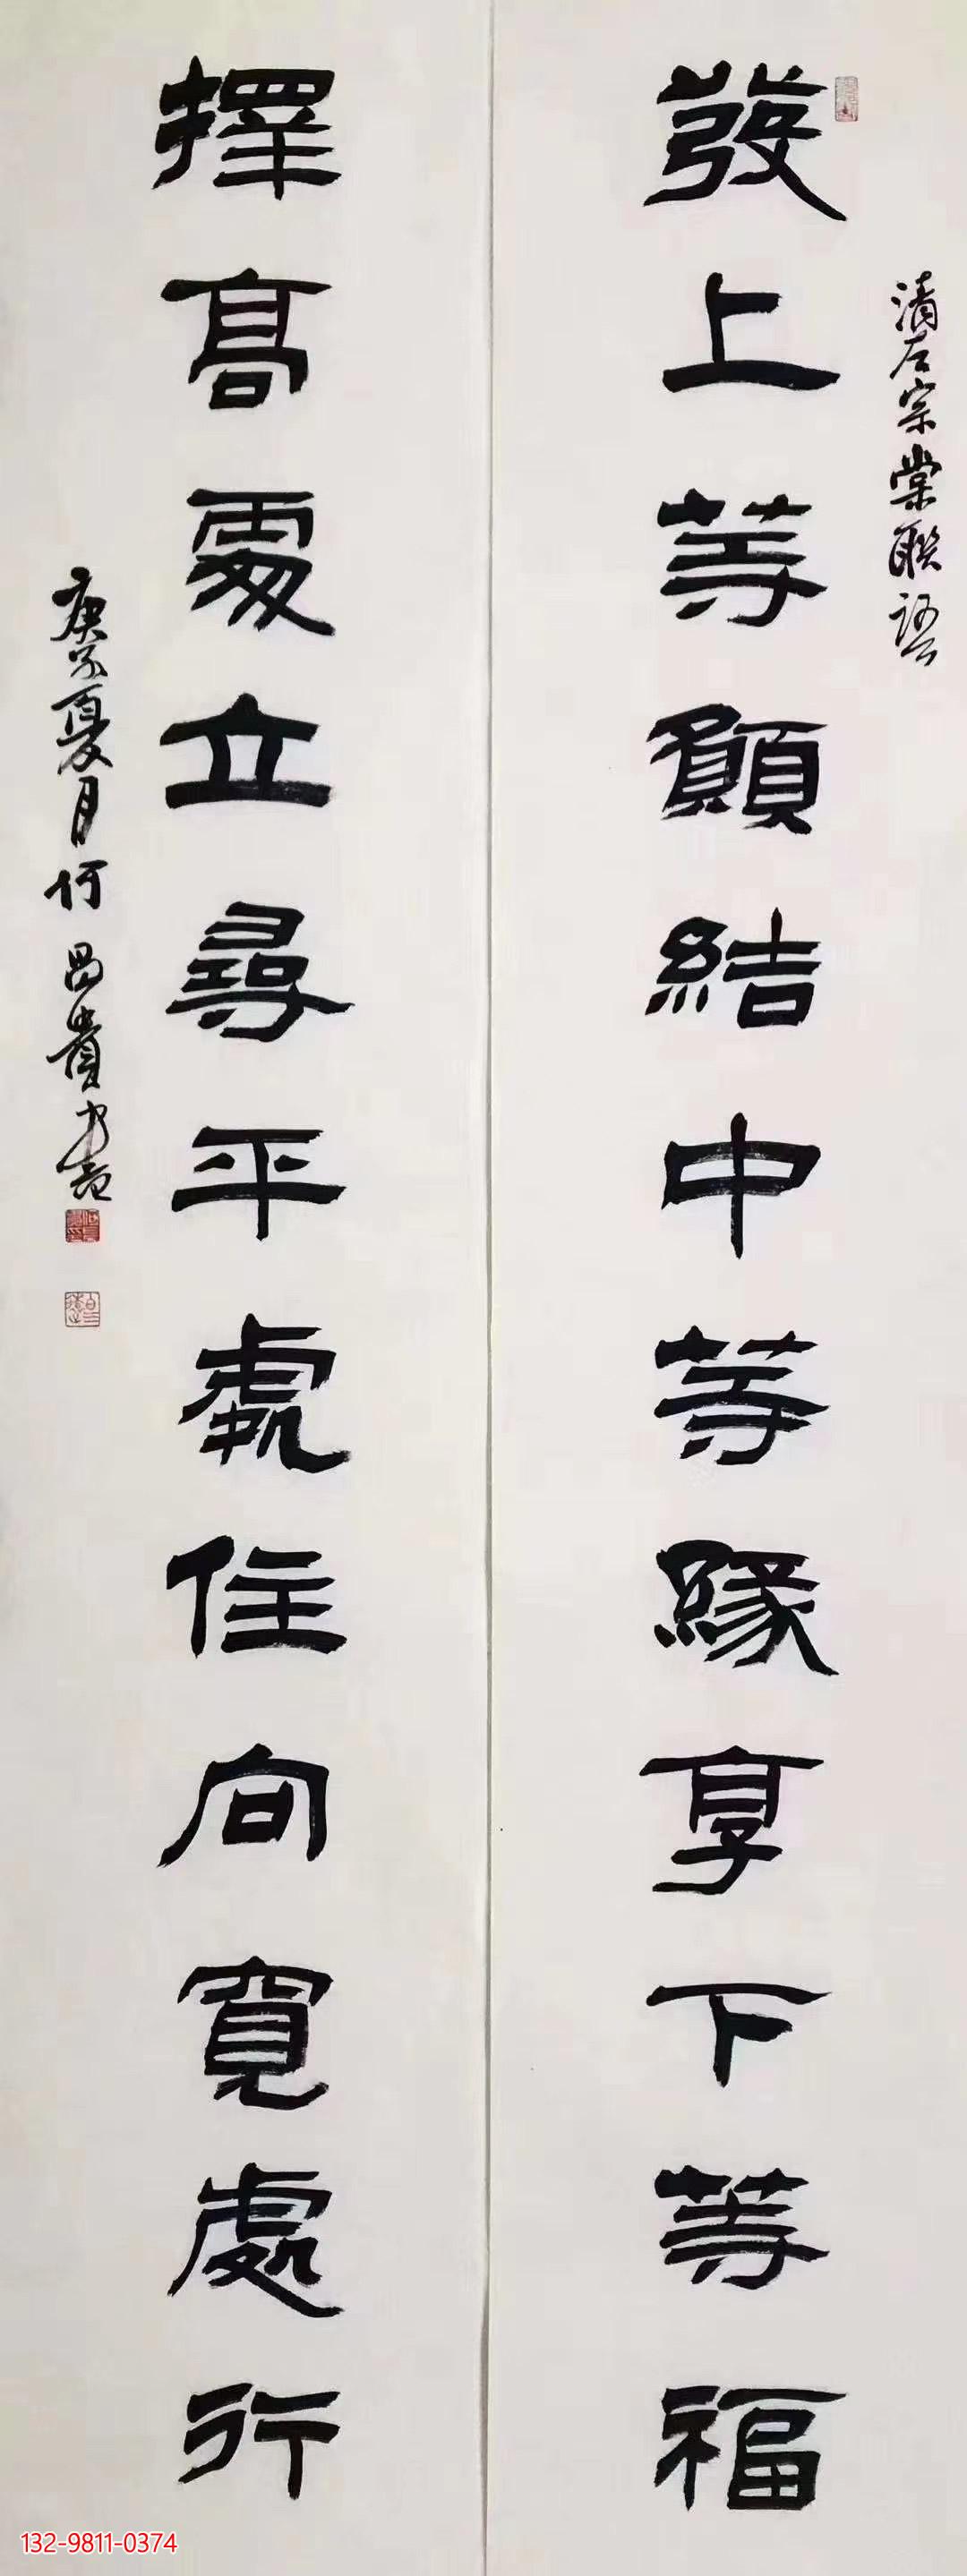 清左宗棠聯語
發上等願結中等緣享下等福
擇高處立尋平處住向寬處行
庚子夏月何昌貴書
132-9811-0374